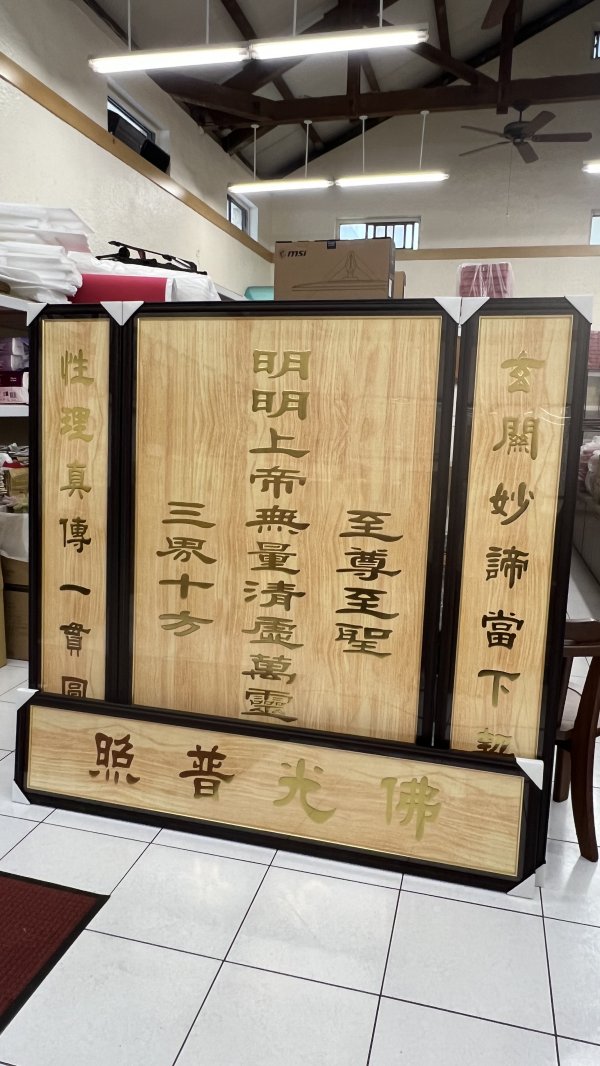 msi
玄關妙諦當下
至尊至聖
明明上帝無量清虛萬靈
三界十方
性理真傳一貫圓
佛光普照